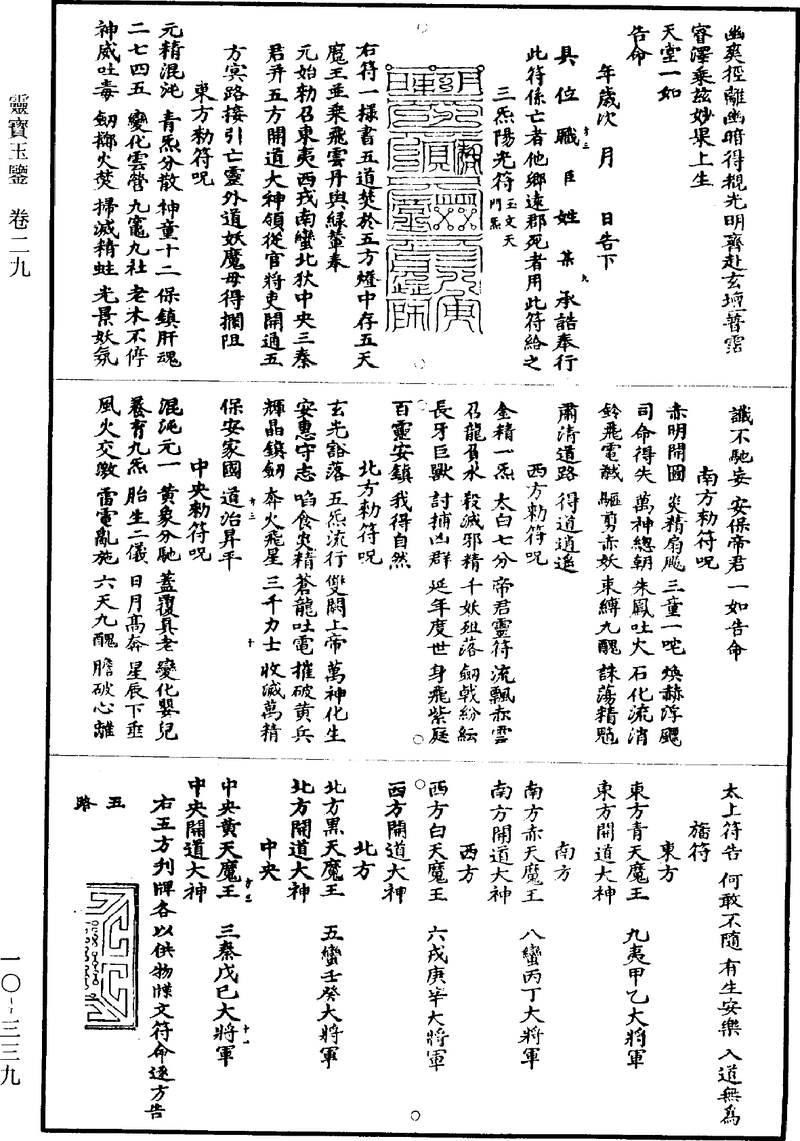 靈寶玉鑒 卷二九
幽爽徑離幽暗得覩光明齊赴玄壇普霑
睿澤乘玆妙果上生
天堂一如
告命
年歲次 月 日告下
具位職臣姓某承誥奉行
此符係亡者他鄉遠郡死者用此符給之
三炁陽光符 玉文天門炁
右符一樣書五道焚於五方燈中存五天
魔王並乘飛雲丹輿綠輦奉
元始勑召東夷西戎南蠻北狄中央三秦
君并五方開道大神領從官將吏開通五
方冥路接引亡靈外道妖魔毋得攔阻
東方勑符呪
元精混沌 青炁分散 神童十二 保鎮肝魂
二七四五 變化雲營 九竈九社 老木不停
神威吐毒 劒擲火焚 掃滅精蛙 光景妖氛
讖不馳妄 安保帝君 一如告命
南方勑符呪
赤明開圖 炎精扇颷 三童一咤 煥赫浮飃
司命得失 萬神總朝 朱鳳吐火 石化流消
鈴飛電戩 驅剪赤妖 束縛九醜 誅蕩精魈
肅清道路 得道逍遙
西方勑符呪
金精一炁 太白七分 帝君靈符 流飄赤雲
召龍負水 殺滅邪精 千妖殂落 劒戟紛紜
長牙巨獸 討捕凶群 延年度世 身飛紫庭
百靈安鎮 我得自然
北方勑符呪
玄光豁落 五炁流行 雙闕上帝 萬神化生
安惠守志 啗食炎精 蒼龍吐電 摧破黄兵
輝晶鎮劒 奔火飛星 三千力士 收滅萬精
保安家國 道治昇平
中央勑符呪
混沌元一 黄象分馳 蓋覆真老 變化嬰兒
養育九炁 胎生二儀 日月高奔 星辰下垂
風火交激 雷電亂施 六天九醜 膽破心離
太上符告 何敢不隨 有生安樂 入道無為
旛符
東方
東方青天魔王 九夷甲乙大將軍
東方開道大神
南方
南方赤天魔王 八蠻丙丁大將軍
南方開道大神
西方
西方白天魔王 六戎庚辛大將軍
西方開道大神
北方
北方黑天魔王 五蠻壬癸大將軍
北方開道大神
中央
中央黄天魔王 三秦戊己大將軍
中央開道大神
右五方列牌各以供物牒文符命逐方告
五
路
一〇-三三九